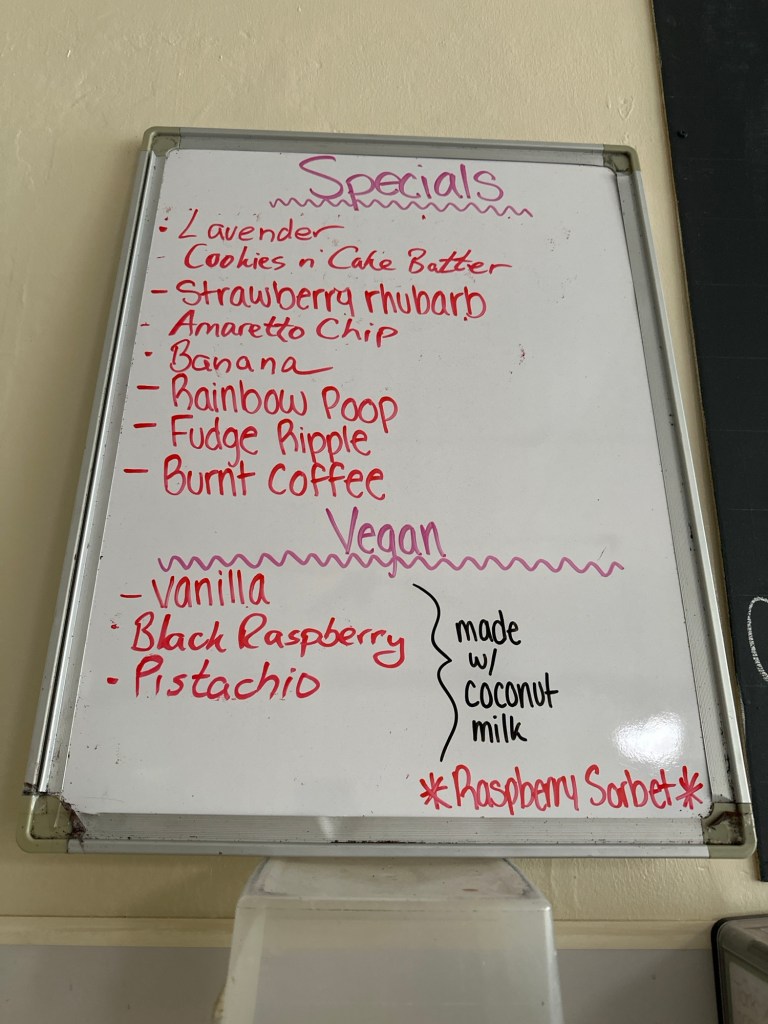 Specials
· Lavender
- Cookies n' Cake Batter
- Strawberry rhubarb
- Amaretto Chip
· Banana
- Rainbow Poop
- Fudge Ripple
- Burnt Coffee
Vegan
- vanilla
· Black Raspberry
· Pistachio
made
w/
coconut
milk
*Raspberry Sorbet*